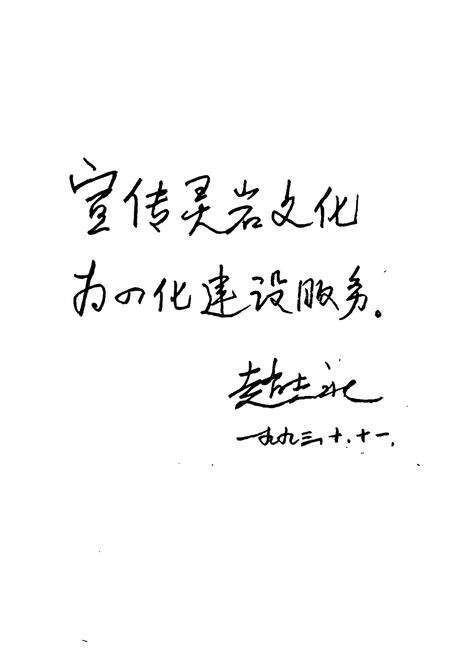 宣传灵岩文化
为四化建设服务.
赵志
一九九三,十.十一.